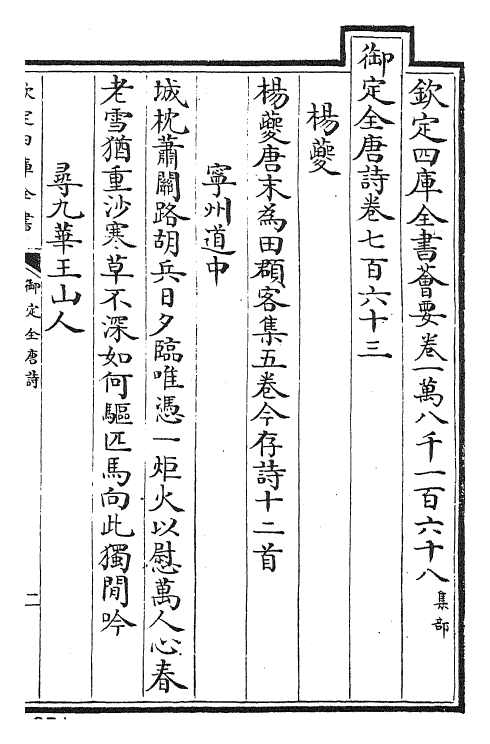 欽定四庫全書薈要卷一萬八千一百六十八集部
御定全唐詩卷七百六十三
楊夔
楊夔唐末為田頵客集五卷今存詩十二首
寧州道中
城枕蕭關路胡兵日夕臨唯憑一炬火以慰萬人心春
老雪猶重沙寒草不深如何驅匹馬向此獨閒吟
尋九華王山人
欽定四庫全書
御定全唐詩
二